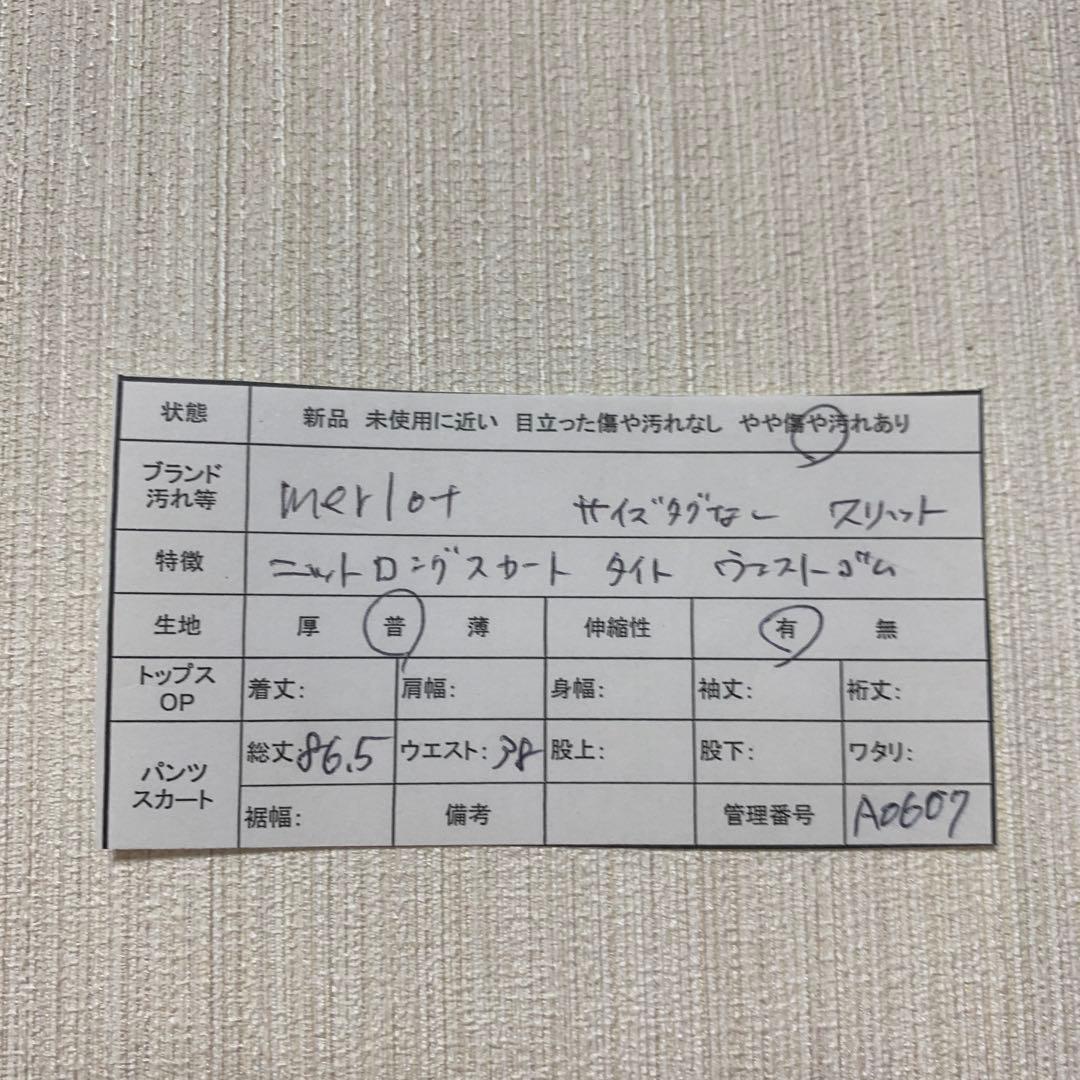 状態 新品 未使用に近い 目立った傷や汚れなし やや傷や汚れあり
ブランド 汚れ等 merlot サイズタグなし スリット
特徴 ニットロングスカート タイト ウエストゴム
生地 厚 普 薄 伸縮性 有 無
トップス OP 着丈: 肩幅: 身幅: 袖丈: 裄丈:
パンツ スカート 総丈:86.5 ウエスト:38 股上: 股下: ワタリ:
裾幅: 備考 管理番号 A0607